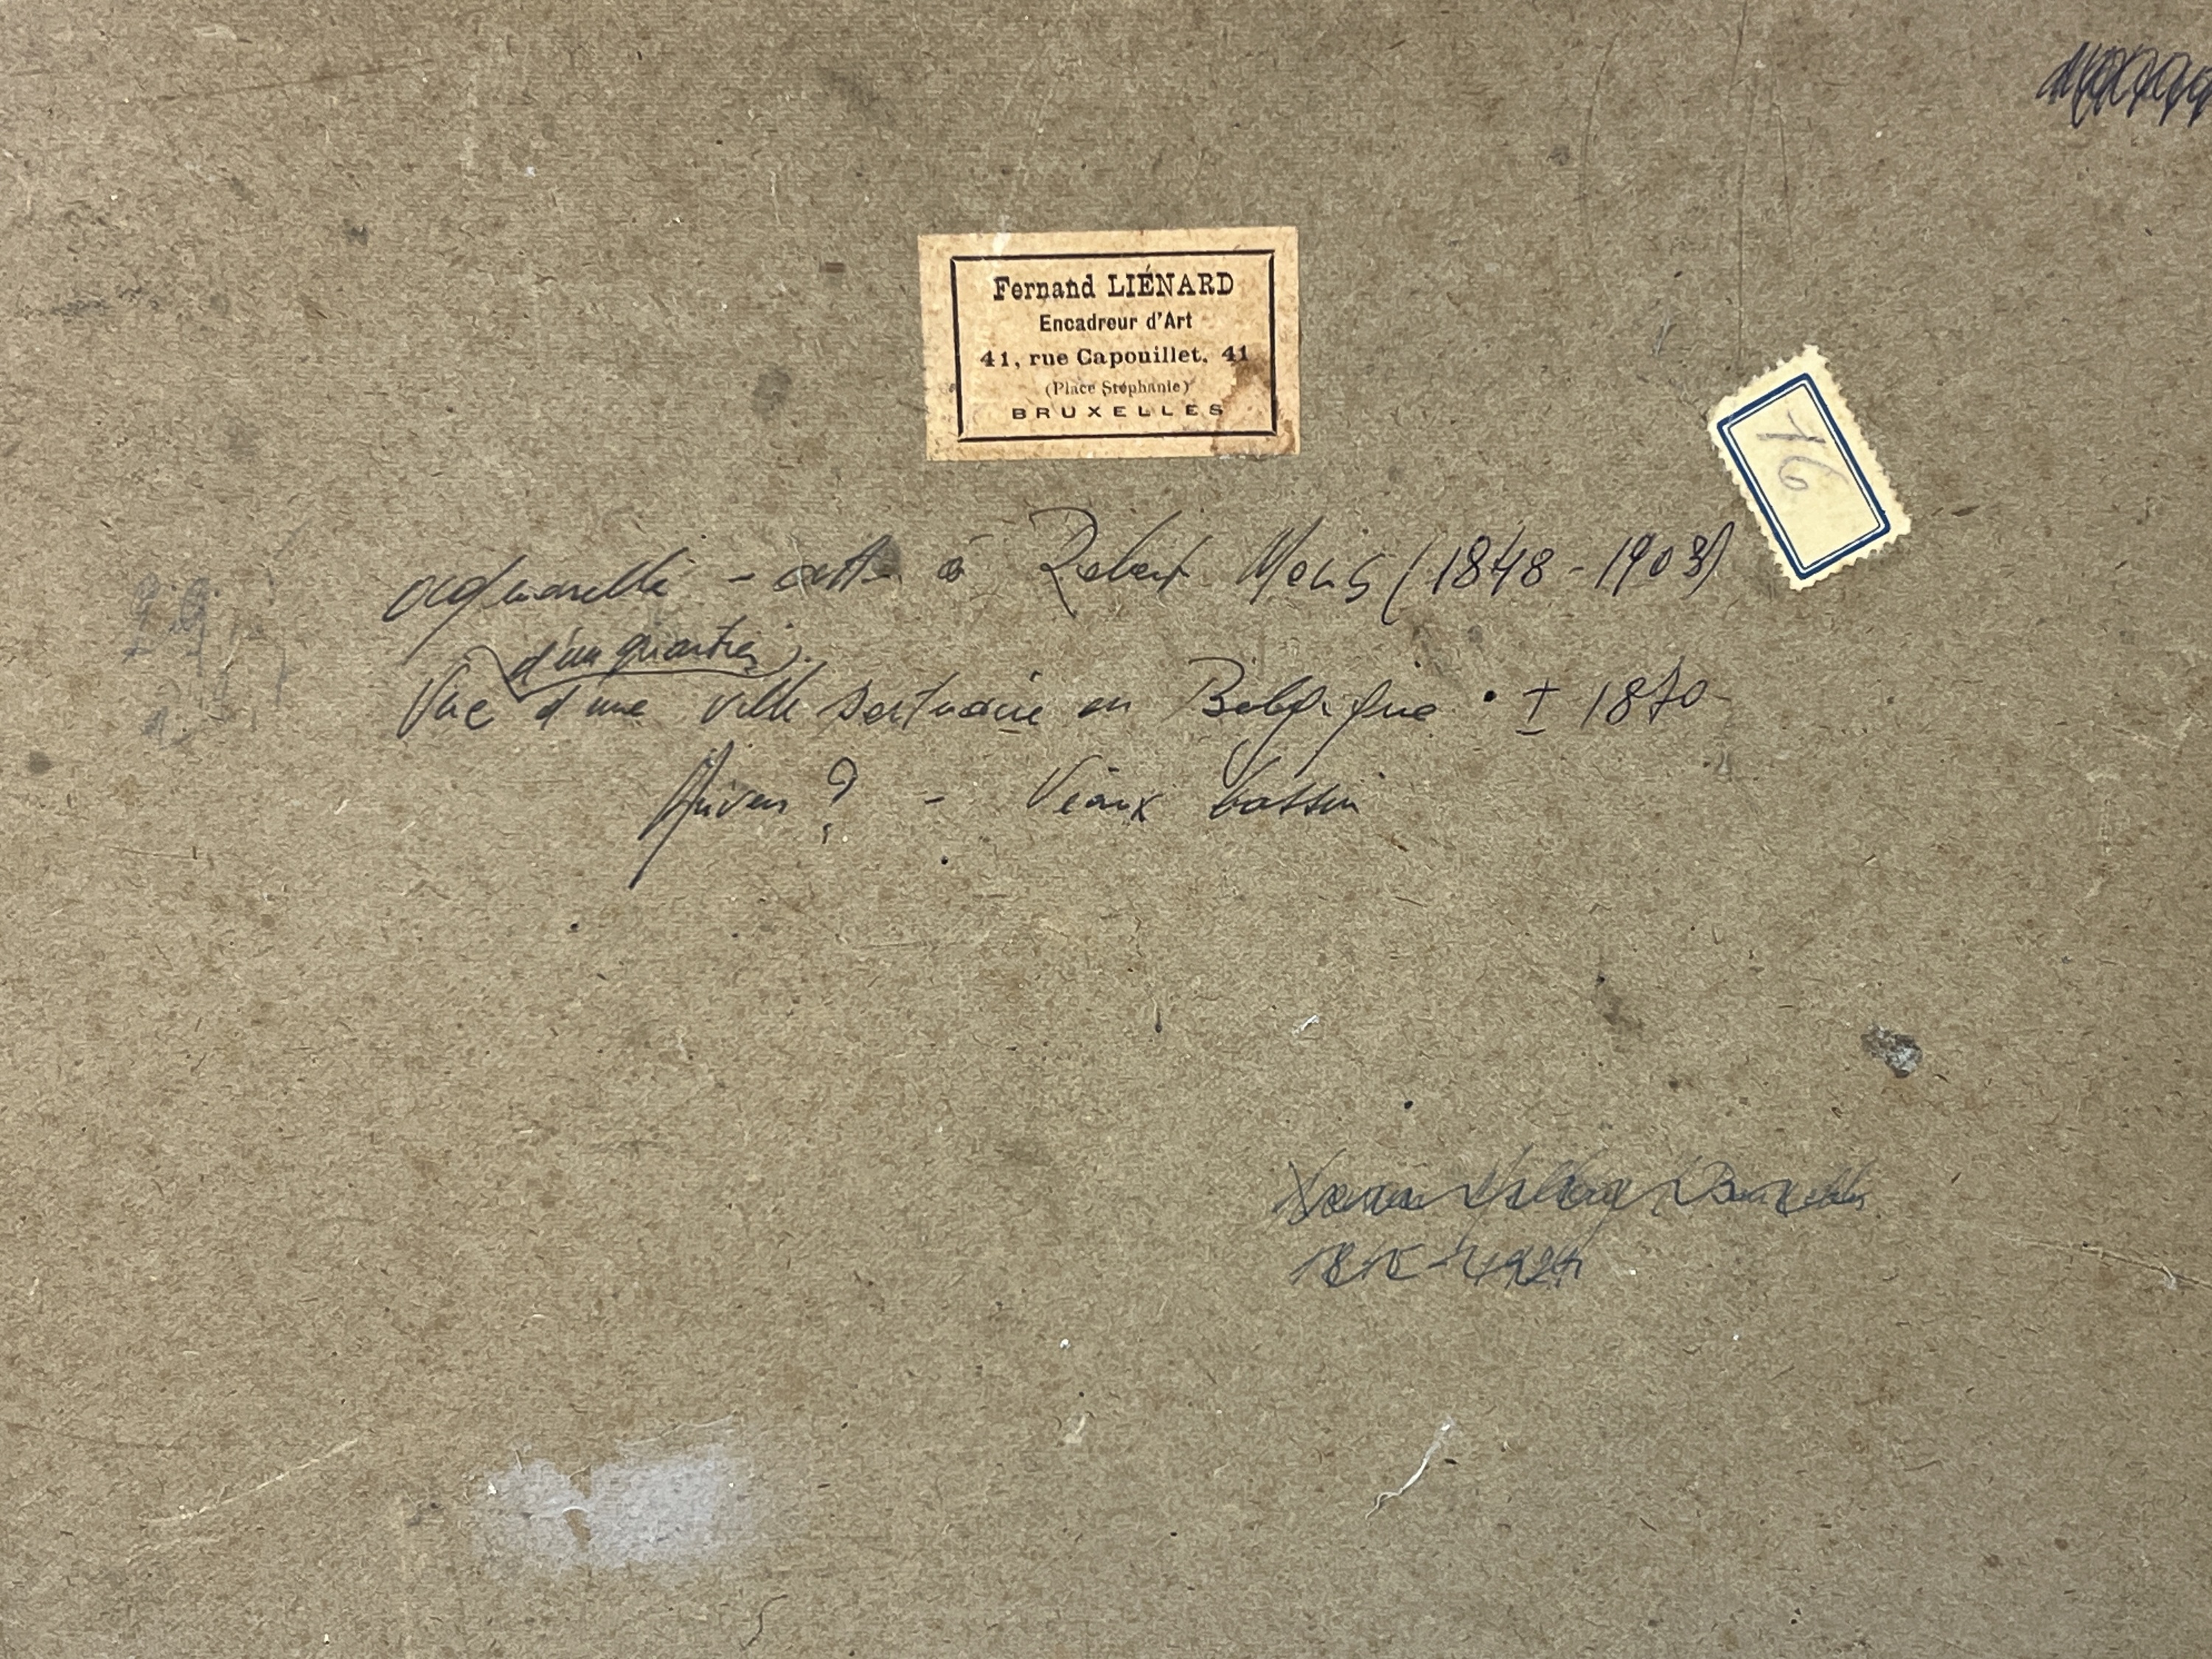 Fernand LIÉNARD
Encadreur d'Art
41, rue Capouillet, 41
(Place Stéphanie)
BRUXELLES
16
aquarelle - att. à Robert Mols (1848 - 1903)
d'un quartier
Vue d'une ville portuaire en Belgique ± 1870
Anvers ? - Vieux bassin